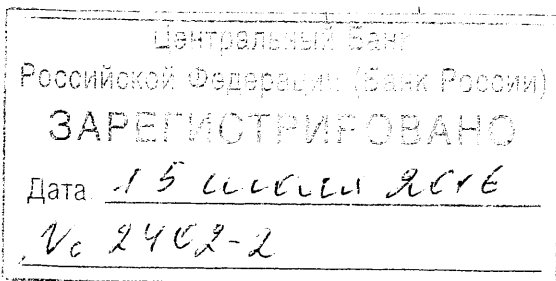 Центральный Банк
Российской Федерации (Банк России)
ЗАРЕГИСТРИРОВАНО
Дата 15 2016
№ 2402-2